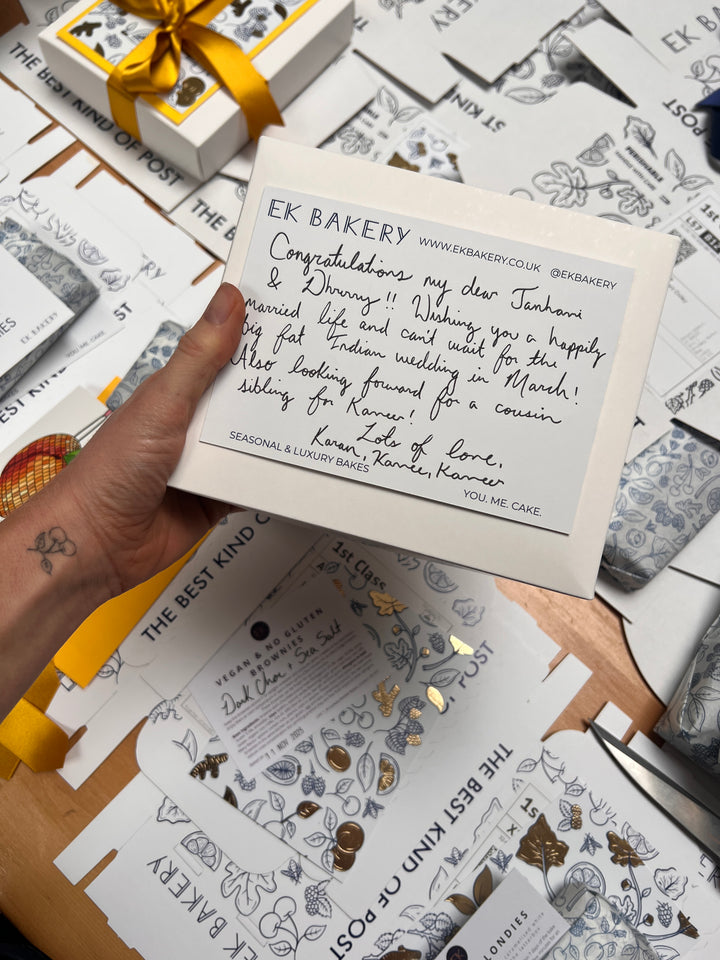 EK BAKERY WWW.EKBAKERY.CO.UK @EKBAKERY
Congratulations my dear Janhavi
& Dhruvy !! Wishing you a happily
married life and can't wait for the
big fat Indian wedding in March!
Also looking forward for a cousin
sibling for Kaveer!
Lots of love,
Karan, Kavee, Kaveer
SEASONAL & LUXURY BAKES
YOU. ME. CAKE.
THE BEST KIND OF POST
EK BAKERY
ST KIND OF POST
THE B
EK BAKERY
YOU. ME. CAKE.
THE BEST KIND O
1st Class
VEGAN & NO GLUTEN
BROWNIES
Dark Choc + Sea Salt
11 NOV 2025
POST
THE BEST KIND OF POST
1s
EK BAKERY
LONDIES
PERISHABLE